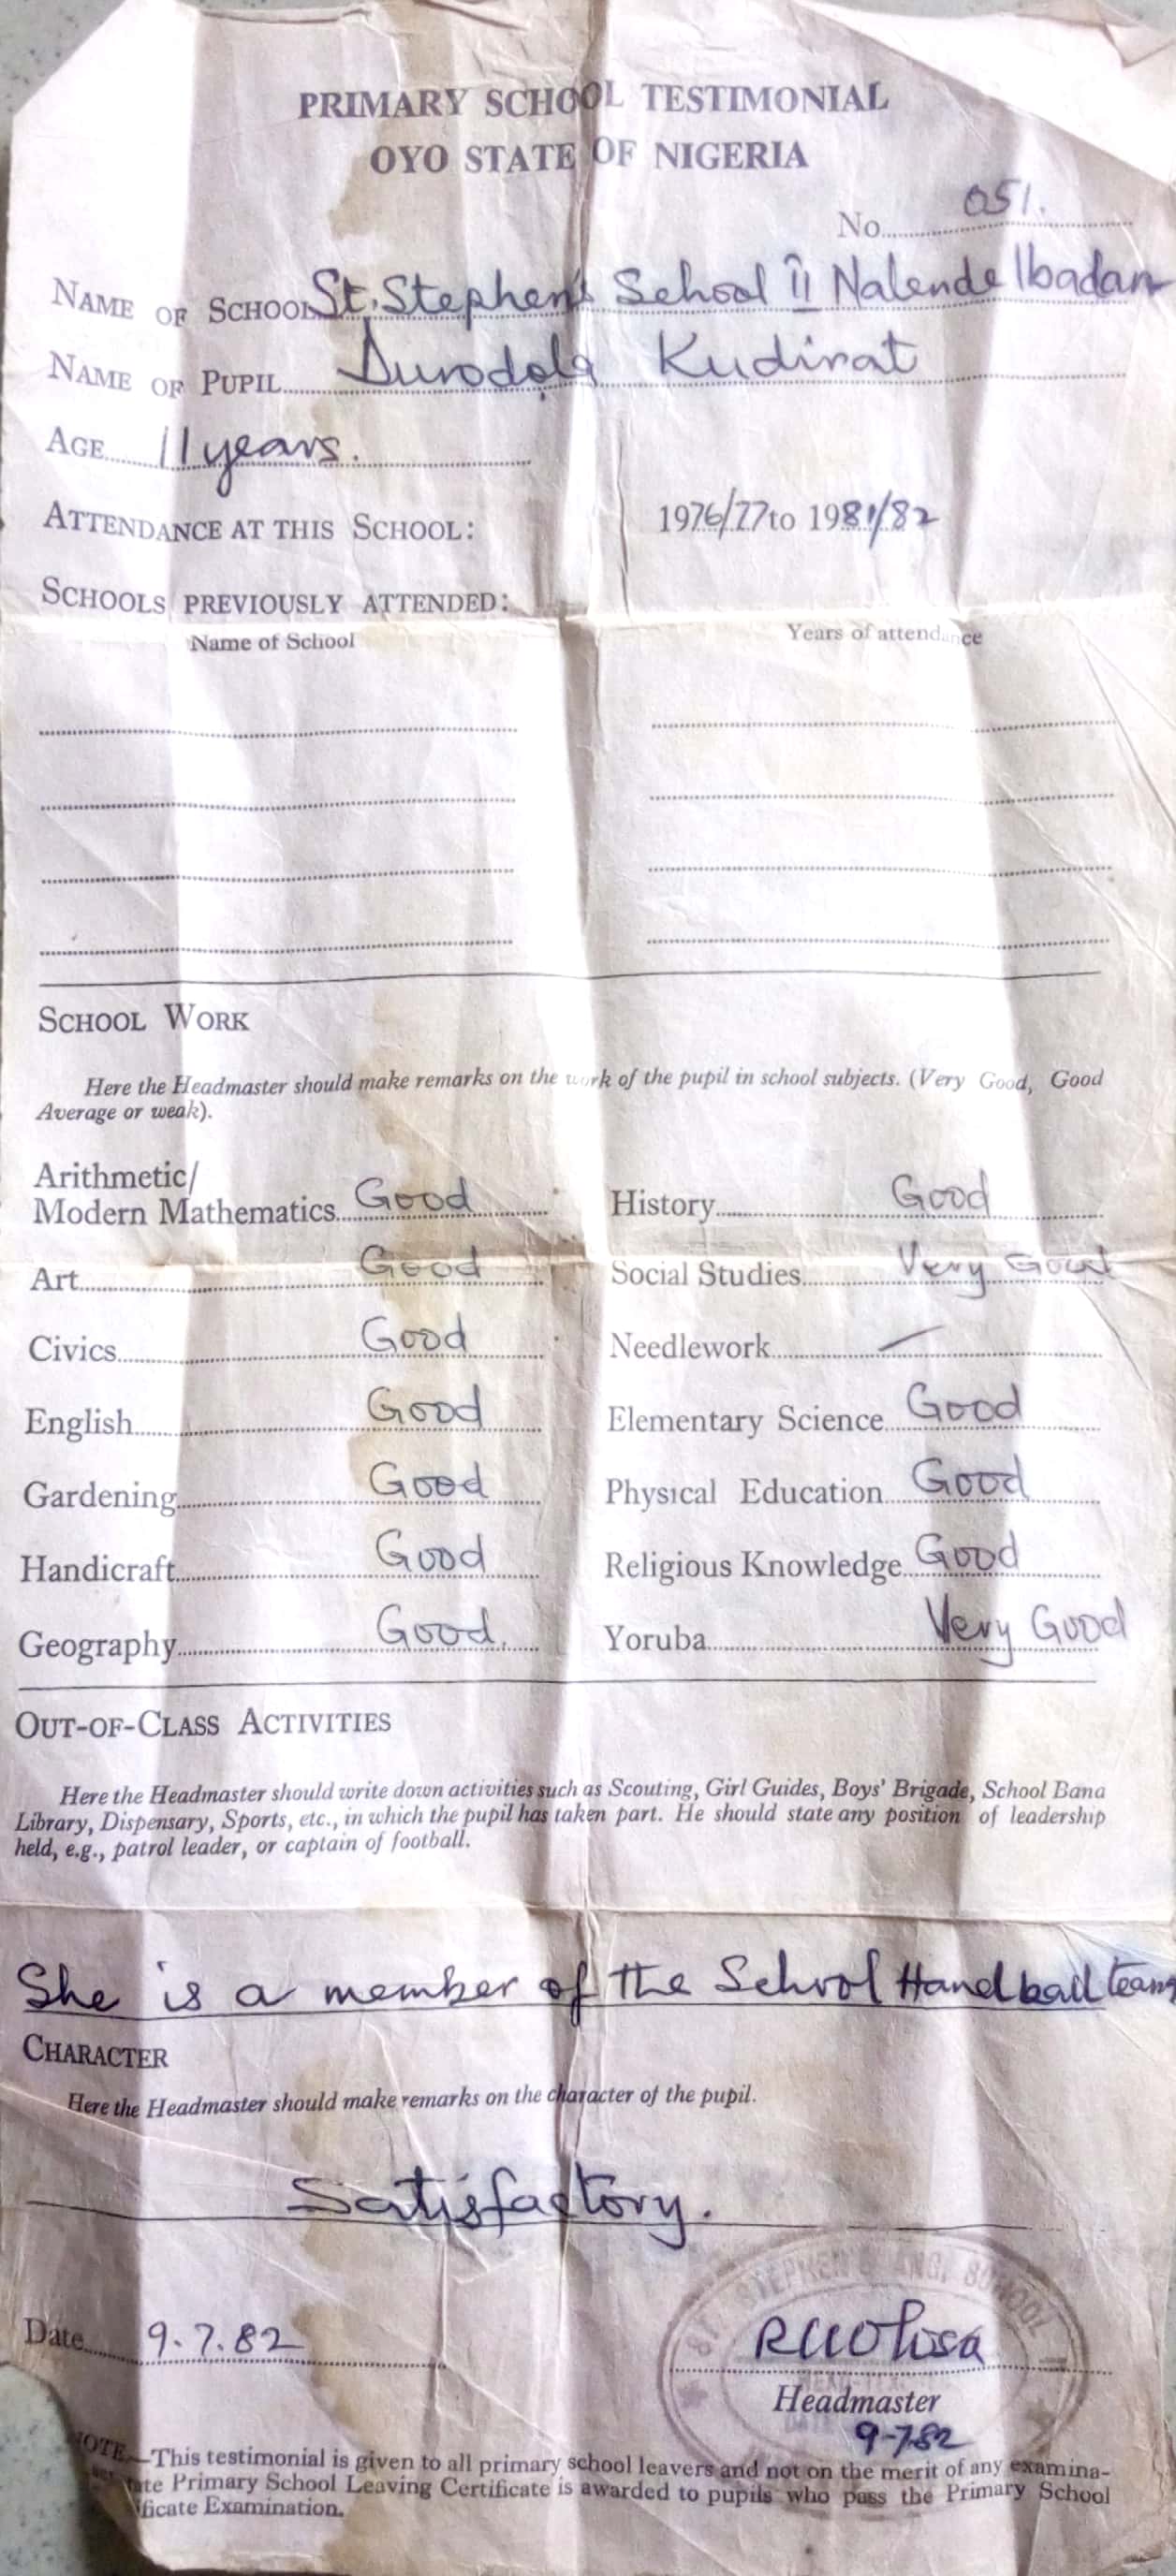 PRIMARY SCHOOL TESTIMONIAL
OYO STATE OF NIGERIA
No. 051.
NAME OF SCHOOL St. Stephen's School II Nalende Ibadan
NAME OF PUPIL Durodola Kudirat
AGE 11 years.
ATTENDANCE AT THIS SCHOOL: 1976/77 to 1981/82
SCHOOLS PREVIOUSLY ATTENDED:
Name of School Years of attendance
SCHOOL WORK
Here the Headmaster should make remarks on the work of the pupil in school subjects. (Very Good, Good
Average or weak).
Arithmetic/
Modern Mathematics Good History Good
Art Good Social Studies Very Good
Civics Good Needlework —
English Good Elementary Science Good
Gardening Good Physical Education Good
Handicraft Good Religious Knowledge Good
Geography Good. Yoruba Very Good
OUT-OF-CLASS ACTIVITIES
Here the Headmaster should write down activities such as Scouting, Girl Guides, Boys' Brigade, School Bana
Library, Dispensary, Sports, etc., in which the pupil has taken part. He should state any position of leadership
held, e.g., patrol leader, or captain of football.
She is a member of the School Handball team
CHARACTER
Here the Headmaster should make remarks on the character of the pupil.
Satisfactory.
STEPHEN'S ANG. SCHOOL
Date 9.7.82
Headmaster
9-7.82
NOTE.—This testimonial is given to all primary school leavers and not on the merit of any examina-
Primary School Leaving Certificate is awarded to pupils who pass the Primary School
ificate Examination.